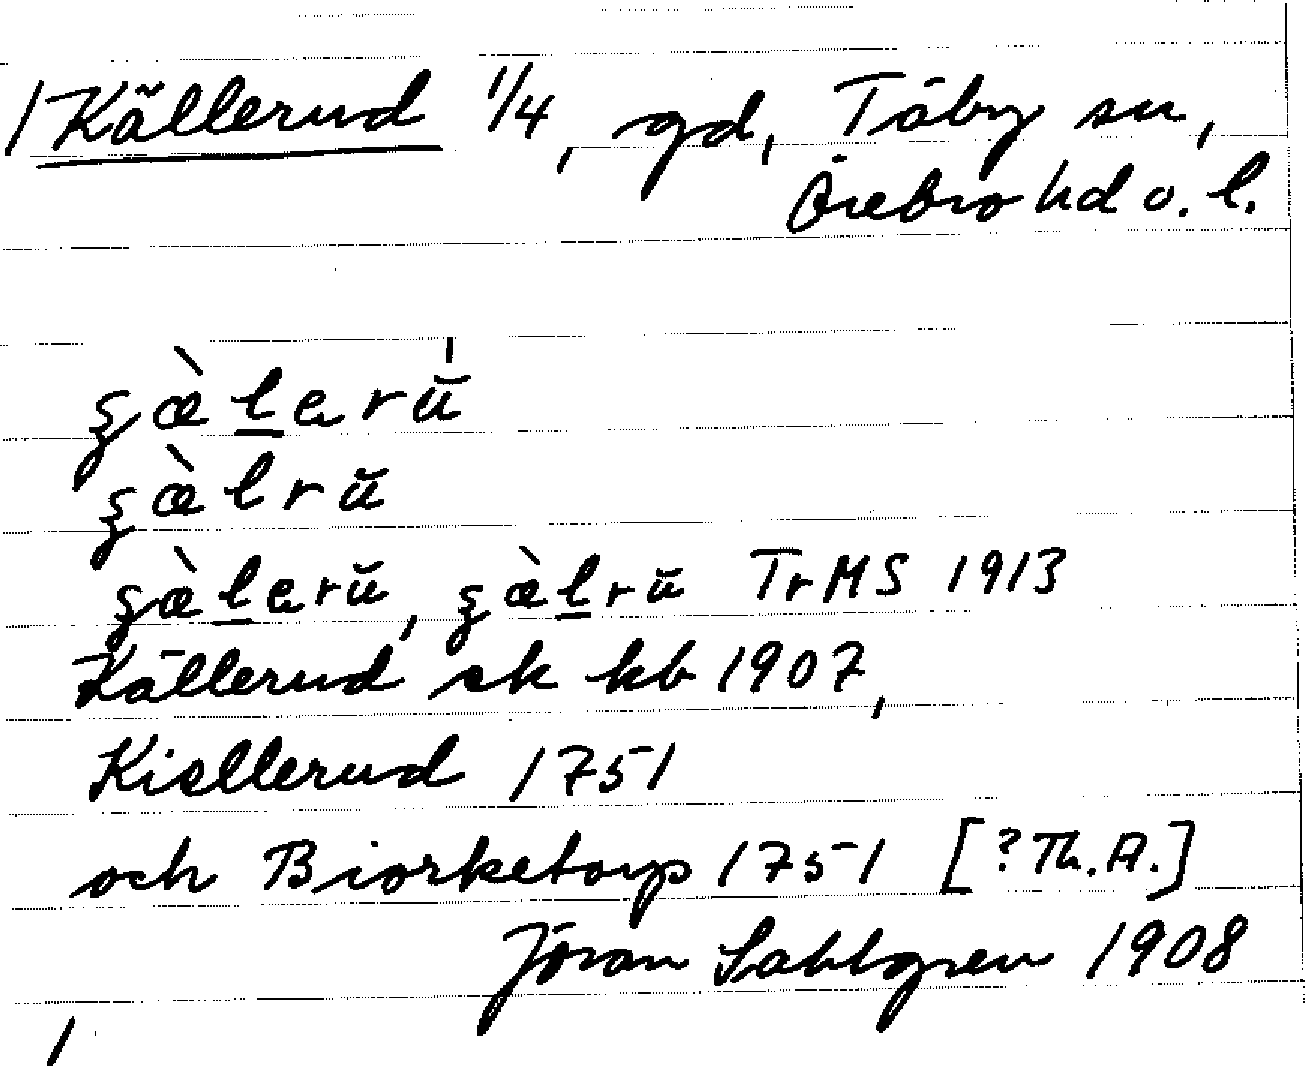 / Källerud 1/4, gd, Täby sn,
Örebro hd o. l.
ʂæ̀lerŭ
ʂæ̀lrŭ
ʂæ̀lerŭ, ʂæ̀lrŭ TrMS 1913
Källerud sk kb 1907,
Kiellerud 1751
och Biorketorp 1751 [? Th. A.]
Jöran Sahlgren 1908
/